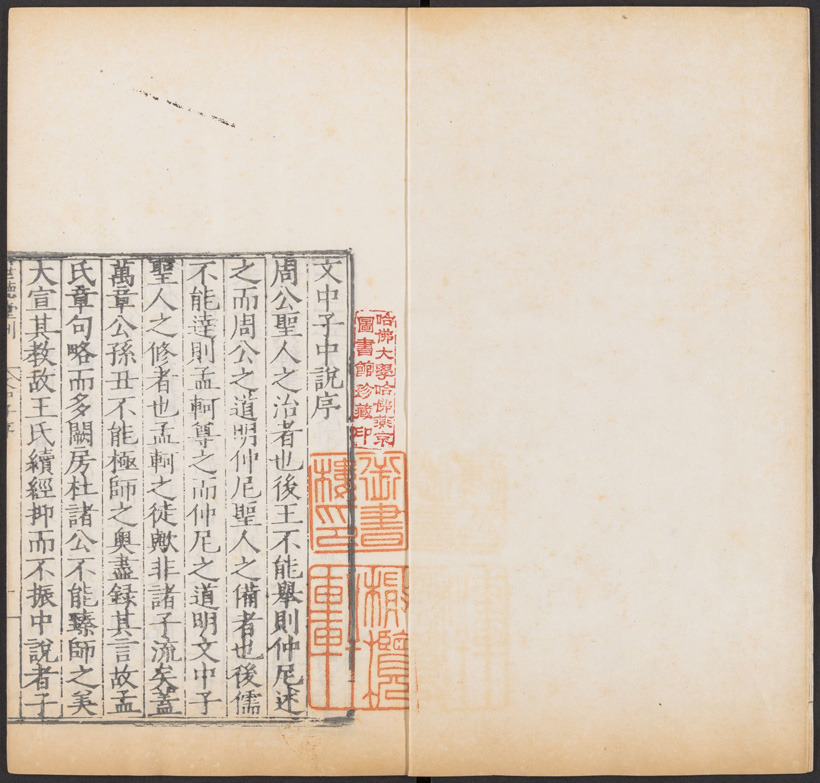 文中子中說序
周公聖人之治者也後王不能舉則仲尼述
之而周公之道明仲尼聖人之備者也後儒
不能達則孟軻尊之而仲尼之道明文中子
聖人之修者也孟軻之徒歟非諸子流矣蓋
萬章公孫丑不能極師之奧盡録其言故孟
氏章句略而多闕房杜諸公不能臻師之美
大宣其教故王氏續經抑而不振中說者子
哈佛大學哈佛燕京
圖書館珍藏印
御書